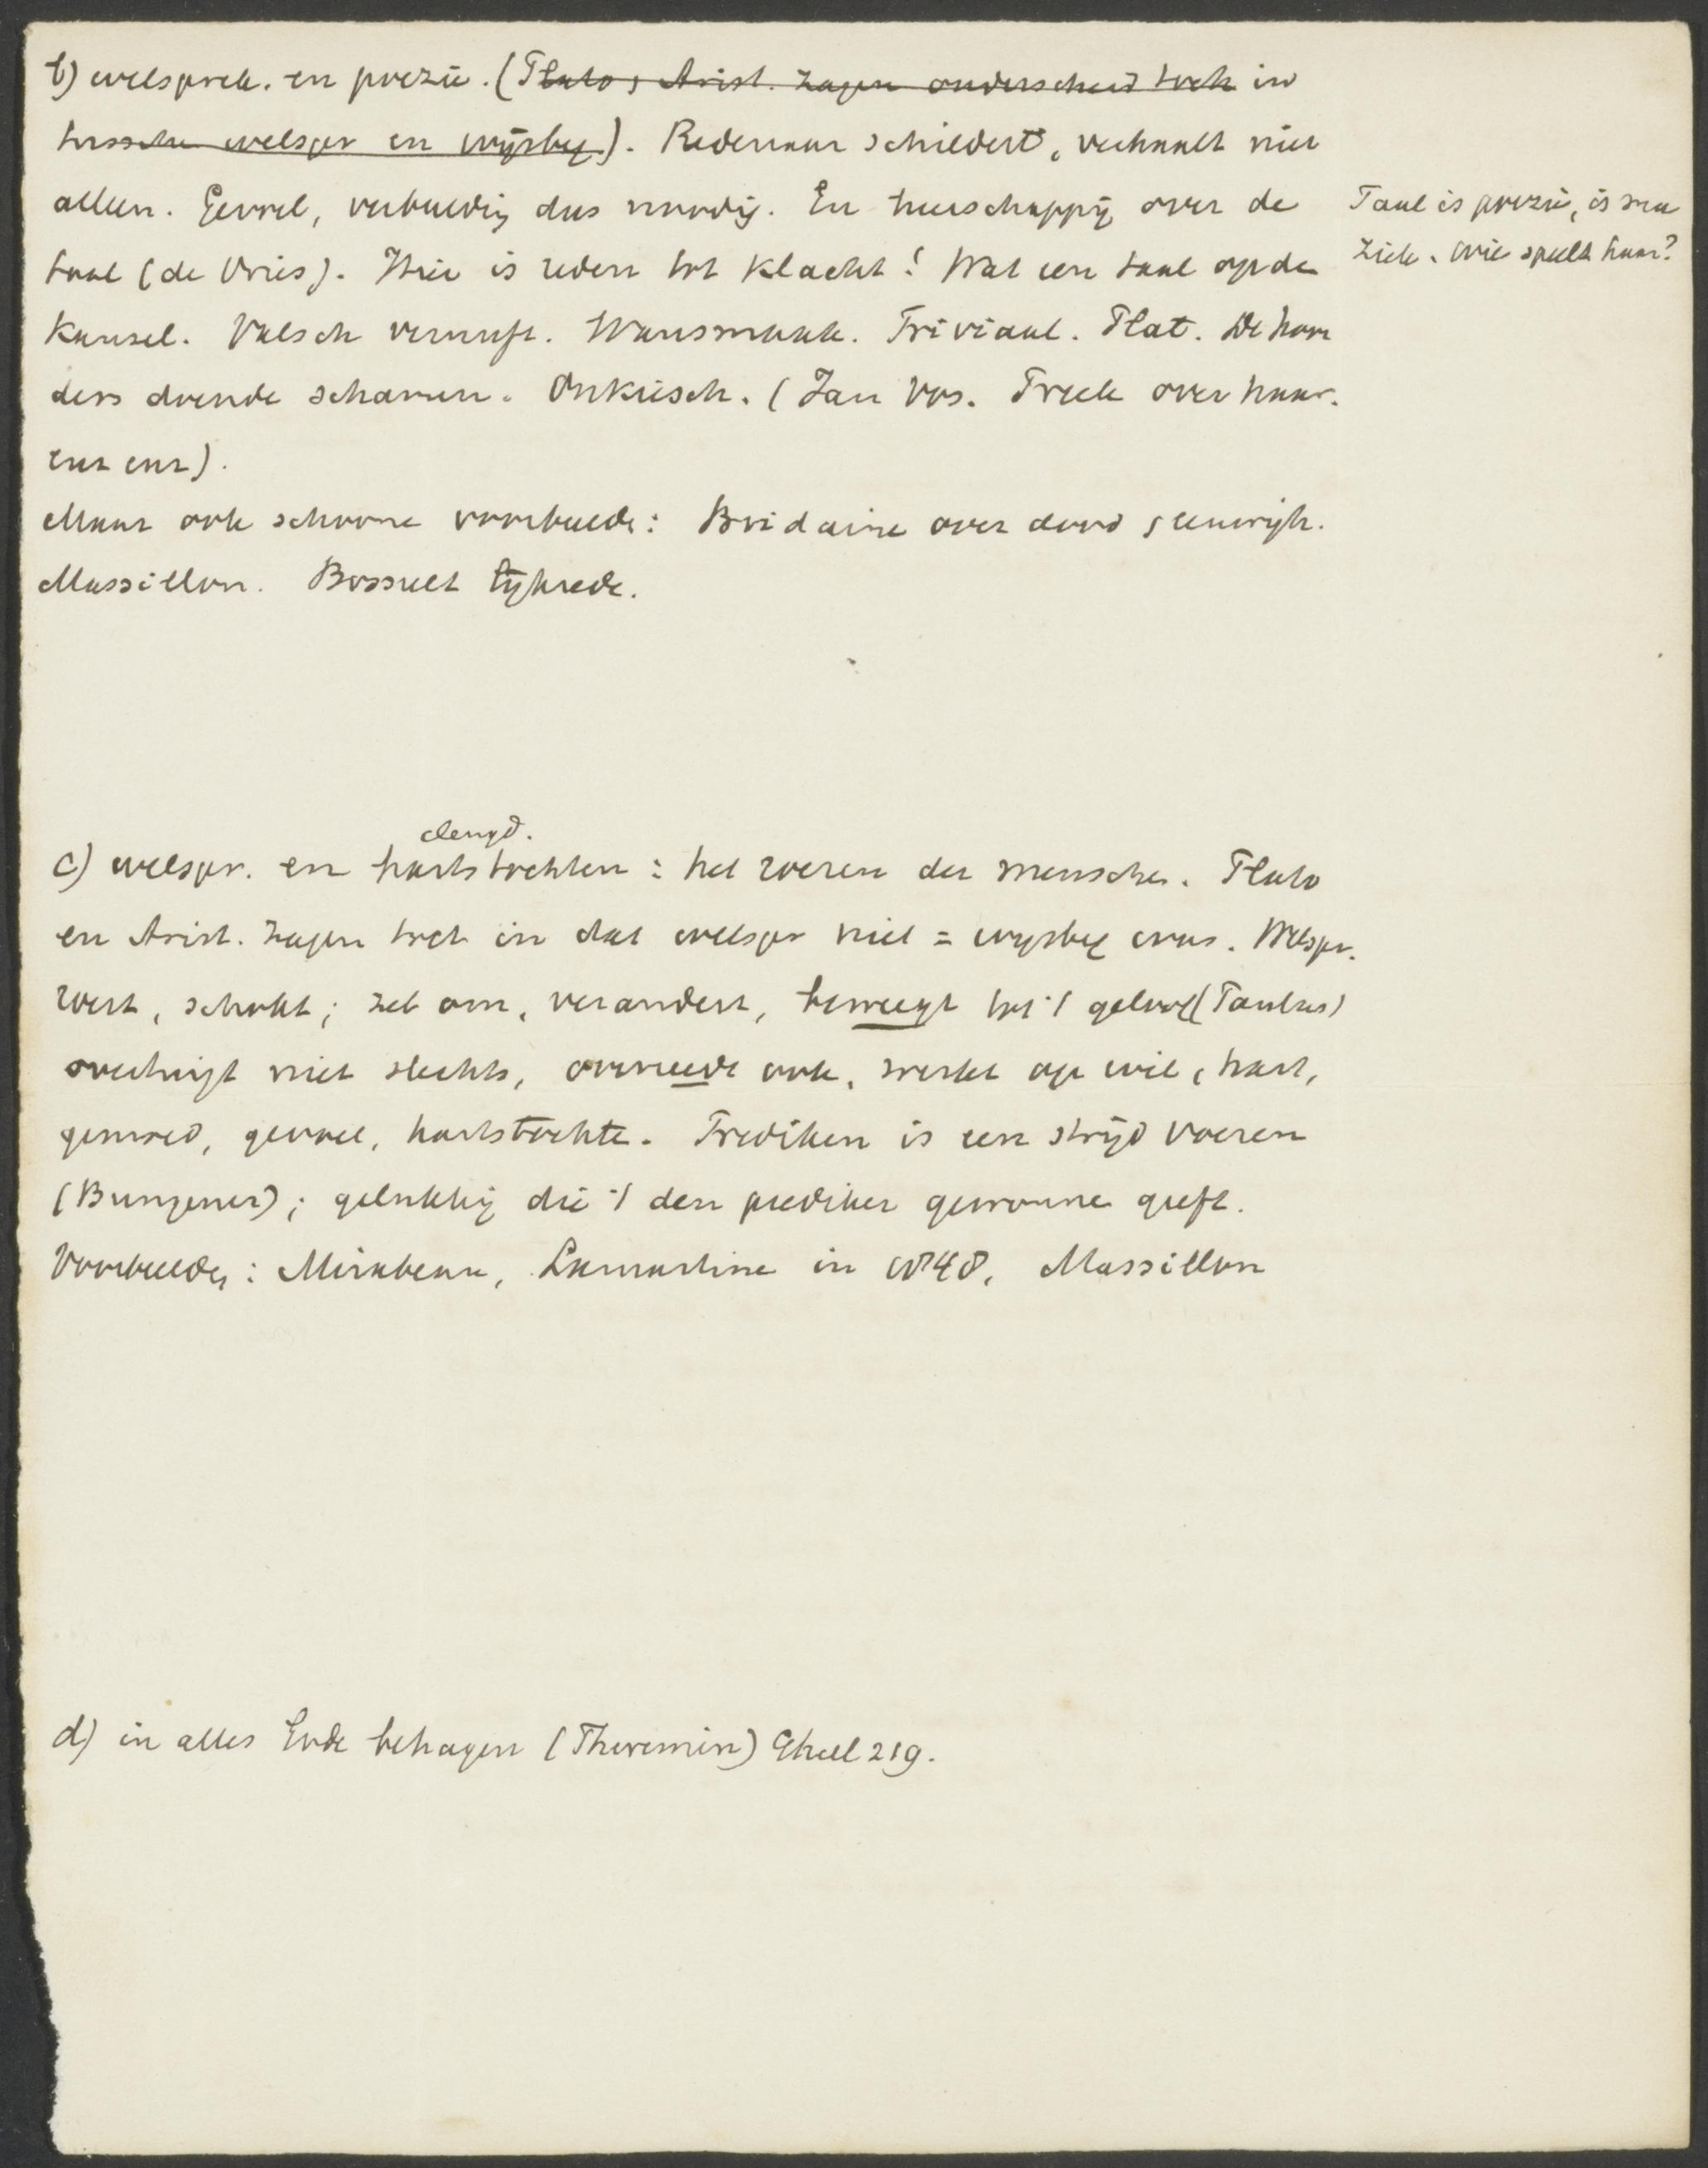 b) welsprek. en poezie. (Plato, Arist. zagen onderscheid toch in
tusschen welspr en wijsbeg). Redenaar schildert, verhaalt niet
alleen. Gevoel, verbeelding dus noodig. En heerschappij over de
taal (de Vries). Hier is reden tot klacht! Wat een taal op den
kansel. Valsch vernuft. Wansmaak. Triviaal. Plat. De hoor
ders doende schamen. Onkiesch. (Jan Vos. Preek over haar.
enz enz).
Maar ook schoone voorbeelden: Bridaine over dood, eeuwigh.
Massillon. Bossuet lijkrede.
Taal is poezie, is mu
ziek. Wie speelt haar?
deugd.
c) welspr. en hartstochten: het roeren der menschen. Plato
en Arist. zagen toch in dat welspr niet = wijsbeg was. Welspr.
roert, schokt; zet om, verandert, beweegt tot 't geloof (Paulus)
overtuigt niet slechts, overreedt ook, werkt op wil, hart,
gemoed, gevoel, hartstochten. Prediken is een strijd voeren
(Bungener); gelukkig die 't den prediker gewonnen geeft.
Voorbeelden: Mirabeau, Lamartine in 1848, Massillon
d) in alles Gode behagen (Theremin) 219.